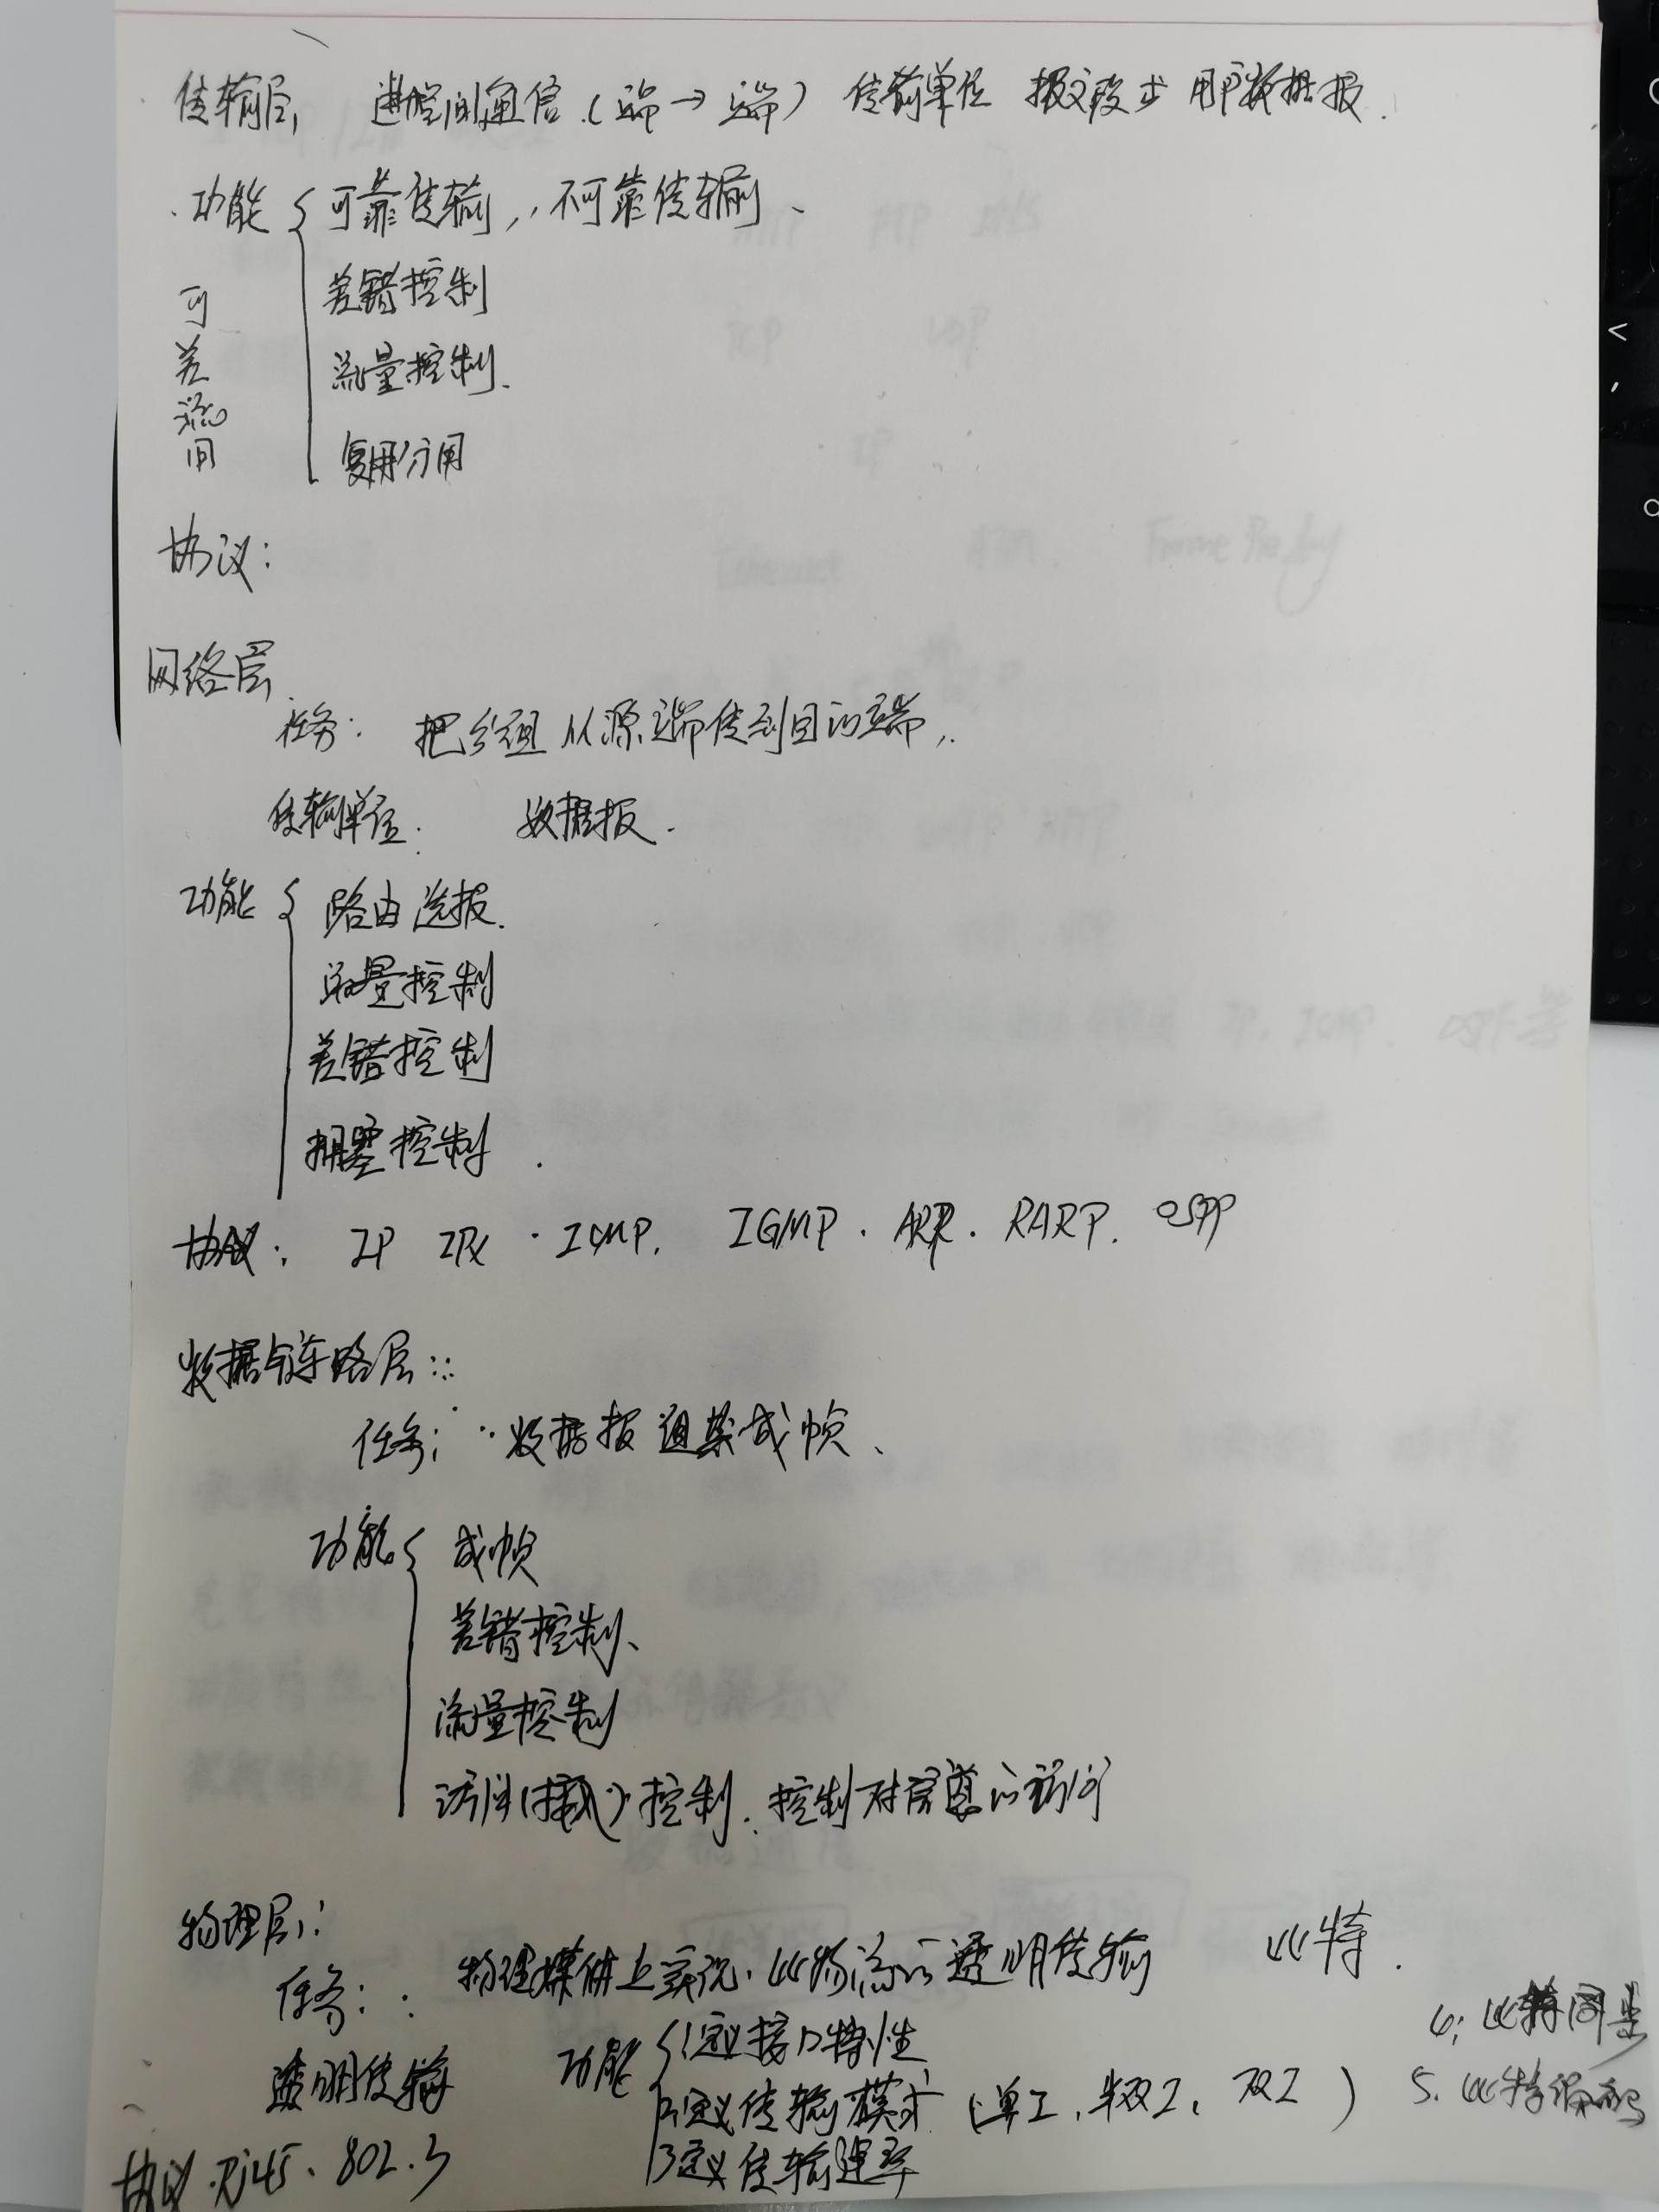 传输层 进程间通信(端→端) 传输单位 报文段或用户数据报.
功能 可靠传输, 不可靠传输、
差错控制
流量控制.
复用分用
可
差
流
用
协议:
网络层
任务: 把分组从源端传到目的端,
传输单位: 数据报.
功能 路由选报.
流量控制
差错控制
拥塞控制.
协议: IP IPX · ICMP. IGMP. ARP. RARP. OSPF
数据链路层:
任务: 数据报组装成帧、
功能 成帧
差错控制、
流量控制
访问(接入)控制. 控制对信道的访问
物理层:
任务: 物理媒体上实现.比特流的透明传输 比特.
透明传输 功能 1定义接口特性
2.定义传输模式 (单工,半双工,双工)
3定义传输速率
4; 比特同步
5. 比特编码
协议.RJ45、802.3